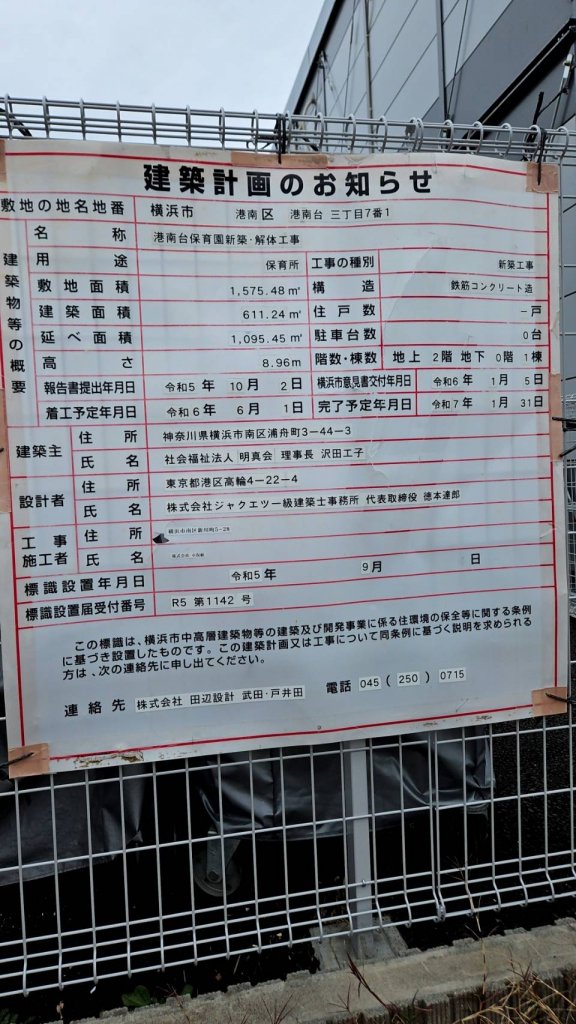 建築計画のお知らせ
敷地の地名地番 横浜市 港南区 港南台 三丁目7番1
建築物等の概要
名称 港南台保育園新築・解体工事
用途 保育所 工事の種別 新築工事
敷地面積 1,575.48㎡ 構造 鉄筋コンクリート造
建築面積 611.24㎡ 住戸数 −戸
延べ面積 1,095.45㎡ 駐車台数 0台
高さ 8.96m 階数・棟数 地上 2階 地下 0階 1棟
報告書提出年月日 令和5年 10月 2日 横浜市意見書交付年月日 令和6年 1月 5日
着工予定年月日 令和6年 6月 1日 完了予定年月日 令和7年 1月 31日
建築主 住所 神奈川県横浜市南区浦舟町3−44−3
氏名 社会福祉法人 明真会 理事長 沢田工子
設計者 住所 東京都港区高輪4−22−4
氏名 株式会社ジャクエツ一級建築士事務所 代表取締役 徳本達郎
工事施工者 住所 横浜市南区新川町5-28
氏名 株式会社
標識設置年月日 令和5年 9月 日
標識設置届受付番号 R5 第1142 号
この標識は、横浜市中高層建築物等の建築及び開発事業に係る住環境の保全等に関する条例
に基づき設置したものです。この建築計画又は工事について同条例に基づく説明を求められる
方は、次の連絡先に申し出てください。
連絡先 株式会社 田辺設計 武田・戸井田 電話 045(250)0715